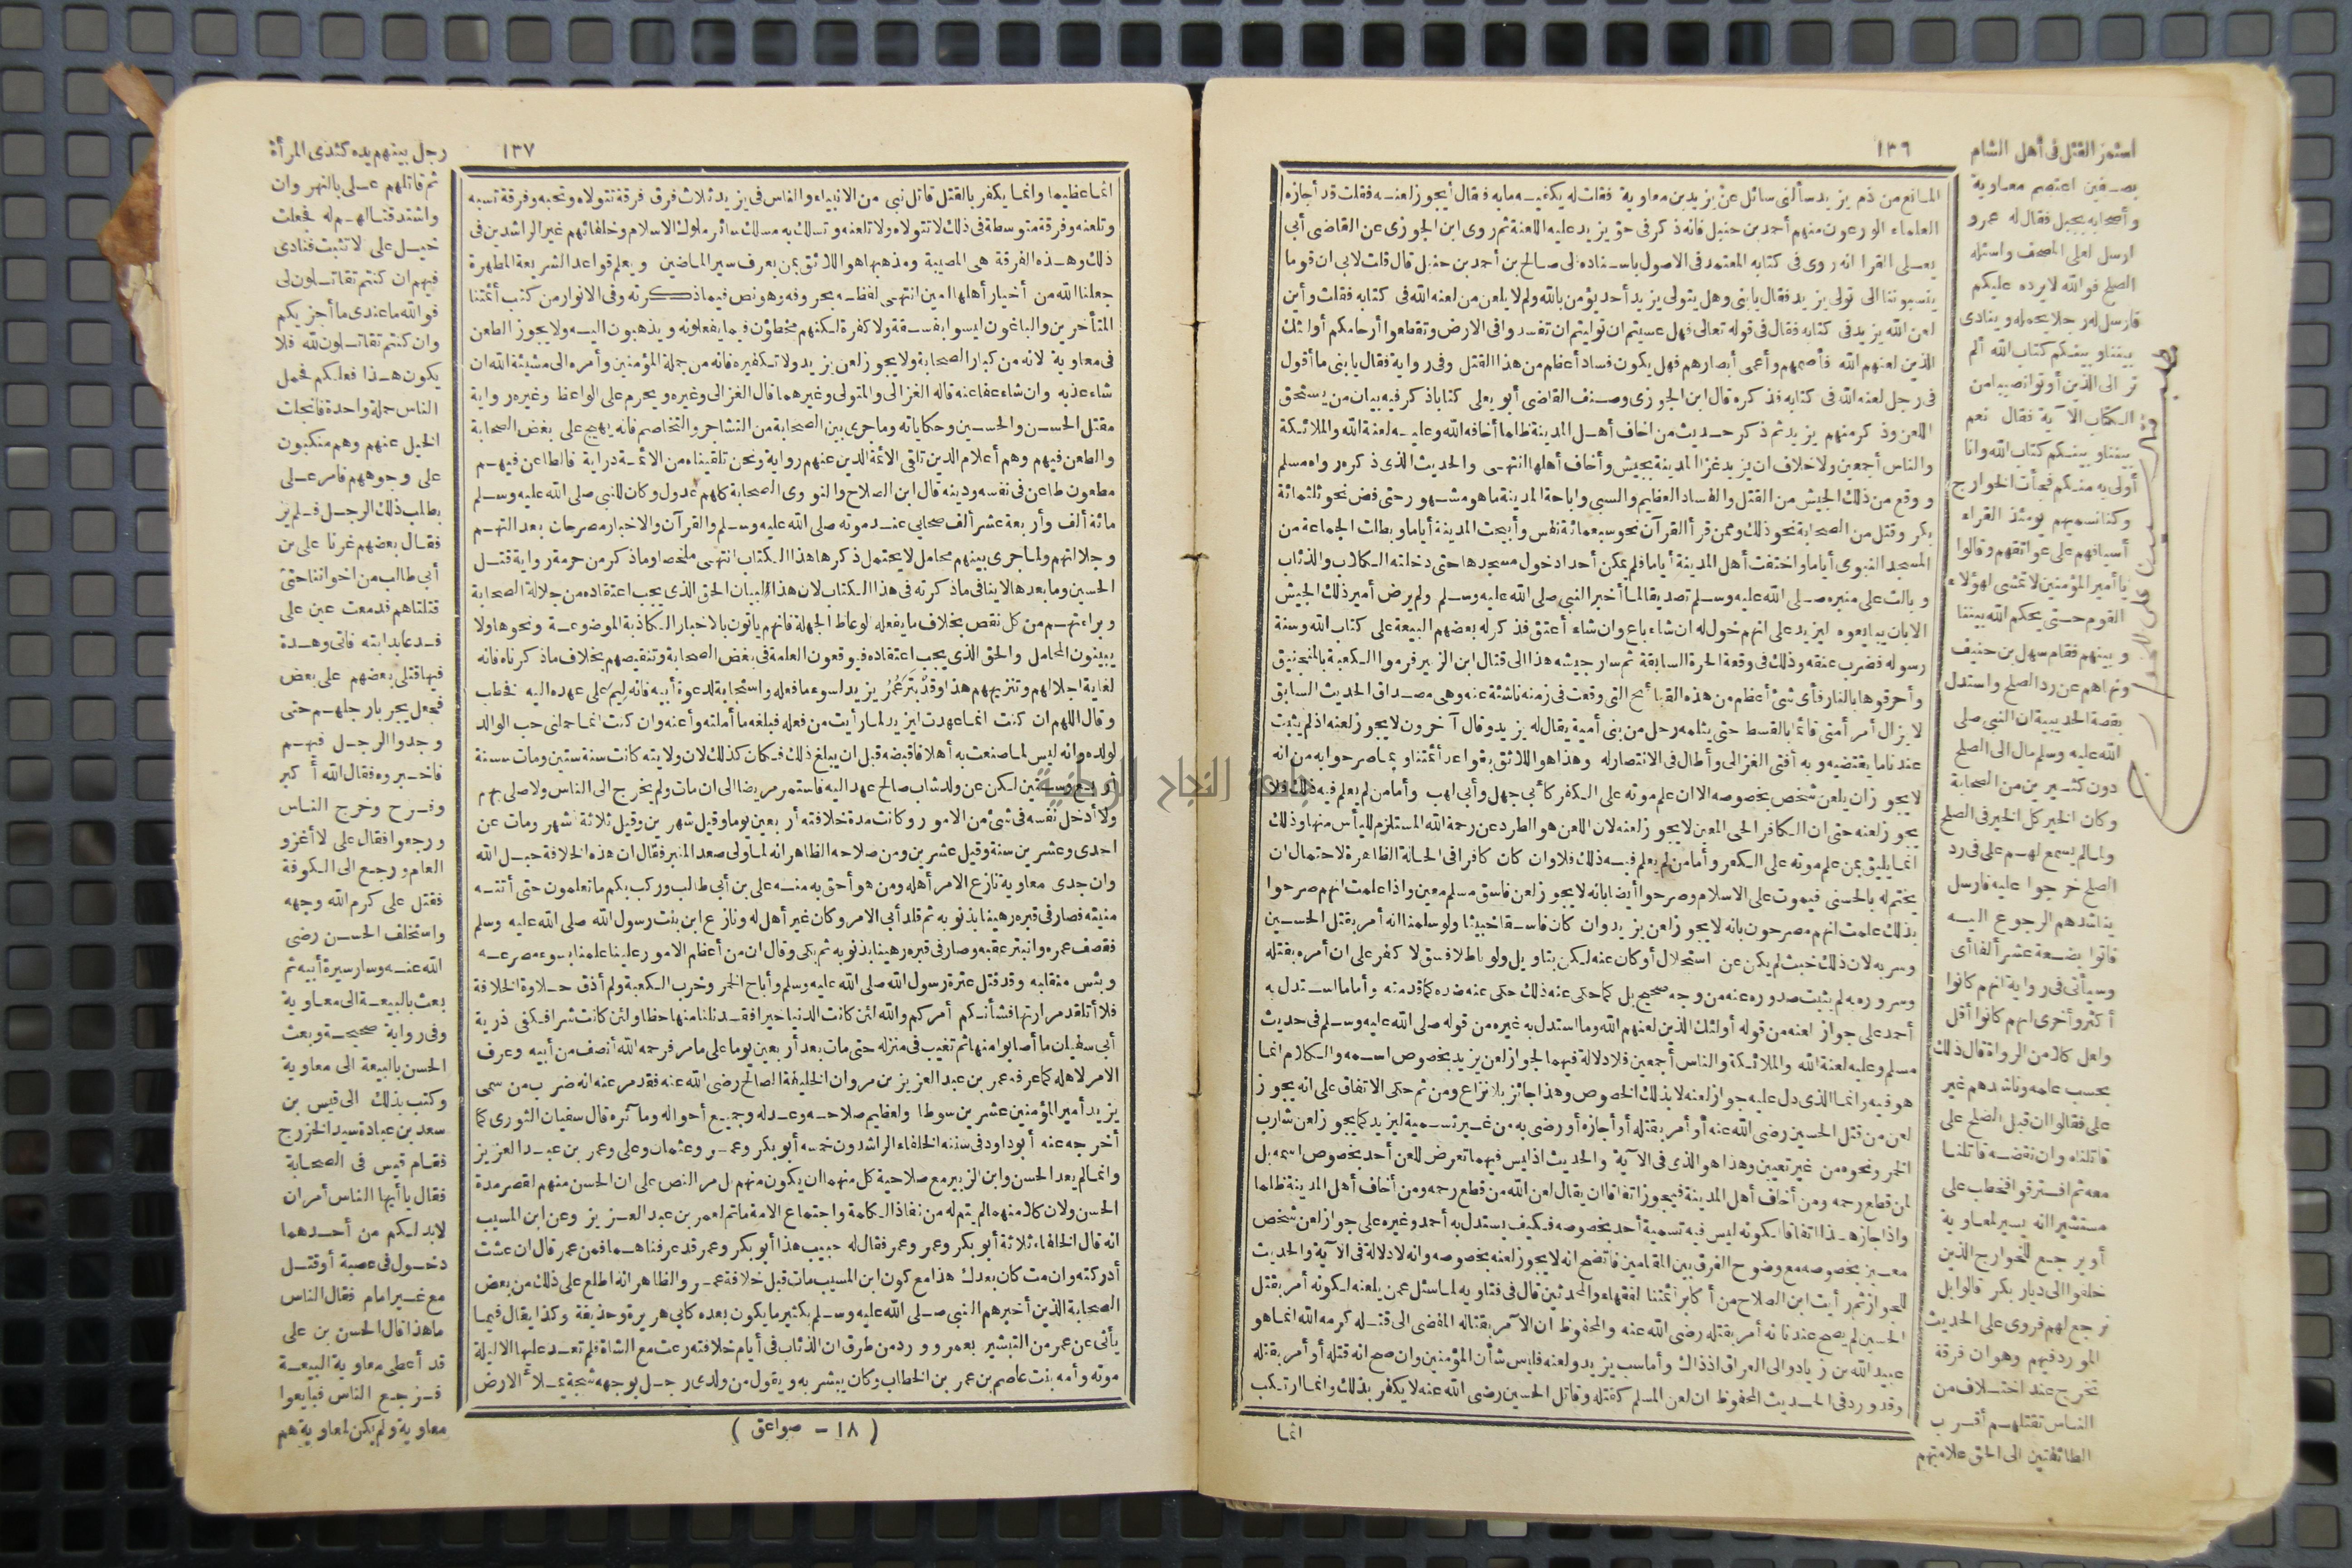 ١٣٦
المانع من ذم يزيد سألنى سائل عن يزيد بن معاوية فقلت له يكفيه مابه فقال أيجوز لعنه فقلت قد أجازه
العلماء الورعون منهم أحمد بن حنبل فانه ذكر فى حق يزيد عليه اللعنة ثم روى ابن الجوزى عن القاضى أبى
يعلى الفرا انه روى فى كتابه المعتمد فى الاصول باسناده الى صالح بن أحمد بن حنبل قال قلت لابى ان قوما
ينسبوننا الى تولى يزيد فقال يا بنى وهل يتولى يزيد أحد يؤمن بالله ولم لا يلعن من لعنه الله فى كتابه فقلت وأين
لعن الله يزيد فى كتابه فقال فى قوله تعالى فهل عسيتم ان توليتم ان تفسدوا فى الارض وتقطعوا أرحامكم أولئك
الذين لعنهم الله فأصمهم وأعمى أبصارهم فهل يكون فساد أعظم من هذا القتل وفى رواية فقال يا بنى ما أقول
فى رجل لعنه الله فى كتابه فذكره قال ابن الجوزى وصنف القاضى أبو يعلى كتابا ذكر فيه بيان من يستحق
اللعن وذكر منهم يزيد ثم ذكر حديث من اخاف أهل المدينة ظلما أخافه الله وعليه لعنة الله والملائكة
والناس أجمعين ولا خلاف ان يزيد غزا المدينة بجيش وأخاف أهلها انتهى والحديث الذى ذكره رواه مسلم
ووقع من ذلك الجيش من القتل والفساد العظيم والسبى واباحة المدينة ما هو مشهور حتى فض نحو ثلثمائة
بكر وقتل من الصحابة نحو ذلك ومن قرأ القرآن نحو سبعمائة نفس وأبيحت المدينة أياما وبطلت الجماعة من
المسجد النبوى أياما واختفت أهل المدينة أياما فلم يمكن أحدا دخول مسجدها حتى دخلته الكلاب والذئاب
وبالت على منبره صلى الله عليه وسلم تصديقا لما أخبر النبى صلى الله عليه وسلم ولم يرض أمير ذلك الجيش
الا بان يبايعوه ليزيد على انهم خول له ان شاء باع وان شاء أعتق فذكر له بعضهم البيعة على كتاب الله وسنة
رسوله فضرب عنقه وذلك فى وقعة الحرة السابقة ثم سار جيشه هذا الى قتال ابن الزبير فرموا الكعبة بالمنجنيق
وأحرقوها بالنار فأى شئ أعظم من هذه القبائح التى وقعت فى زمنه ناشئة عنه وهى مصداق الحديث السابق
لا يزال أمر أمتى قائما بالقسط حتى يثلمه رجل من بنى أمية يقال له يزيد وقال آخرون لا يجوز لعنه اذ لم يثبت
عندنا ما يقتضيه وبه أفتى الغزالى وأطال فى الانتصار له وهذا هو اللائق بقواعد أئمتنا وبما صرحوا به من انه
لا يجوز ان يلعن شخص بخصوصه الا ان علم موته على الكفر كأبى جهل وأبى لهب وأما من لم يعلم فيه ذلك فلا
يجوز لعنه حتى ان الكافر الحى المعين لا يجوز لعنه لان اللعن هو الطرد عن رحمة الله المستلزم لليأس منها وذلك
انما يليق بمن علم موته على الكفر وأما من لم يعلم فيه ذلك فلا وان كان كافرا فى الحالة الظاهرة لاحتمال ان
يختم له بالحسنى فيموت على الاسلام وصرحوا أيضا بانه لا يجوز لعن فاسق مسلم معين واذا علمت انهم صرحوا
بذلك علمت انهم مصرحون بانه لا يجوز لعن يزيد وان كان فاسقا خبيثا ولو سلمنا انه أمر بقتل الحسين
وسر به لان ذلك حيث لم يكن عن استحلال أو كان عنه لكن بتاويل ولو باطلا فسق لا كفر على ان أمره بقتله
وسروره به لم يثبت صدوره عنه من وجه صحيح بل كما حكى عنه ذلك حكى عنه ضده كما قدمته وأما ما استدل به
أحمد على جواز لعنه من قوله أولئك الذين لعنهم الله وما استدل به غيره من قوله صلى الله عليه وسلم فى حديث
مسلم وعليه لعنة الله والملائكة والناس أجمعين فلا دلالة فيهما لجواز لعن يزيد بخصوص اسمه والكلام انما
هو فيه وانما الذى دل عليه جواز لعنه لا بذلك الخصوص وهذا جائز بلا نزاع ومن ثم حكى الاتفاق على انه يجوز
لعن من قتل الحسين رضى الله عنه أو أمر بقتله أو أجازه أو رضى به من غير تسمية ليزيد كما يجوز لعن شارب
الخمر ونحوه من غير تعيين وهذا هو الذى فى الآية والحديث اذ ليس فيهما تعرض للعن أحد بخصوص اسمه بل
لمن قطع رحمه ومن أخاف أهل المدينة فيجوز اتفاقا ان يقال لعن الله من قطع رحمه ومن أخاف أهل المدينة ظلما
واذا جاز هذا اتفاقا لكونه ليس فيه تسمية أحد بخصوصه فكيف يستدل به أحمد وغيره على جواز لعن شخص
معين بخصوصه مع وضوح الفرق بين المقامين فاتضح انه لا يجوز لعنه بخصوصه وانه لا دلالة فى الآية والحديث
للجواز ثم رأيت ابن الصلاح من أكابر أئمتنا الفقهاء والمحدثين قال فى فتاويه لما سئل عمن يلعنه لكونه أمر بقتل
الحسين لم يصح عندنا انه أمر بقتله رضى الله عنه والمحفوظ ان الآمر بقتاله المفضى الى قتله كرمه الله انما هو
عبيد الله بن زياد والى العراق اذ ذاك وأما سب يزيد ولعنه فليس شأن المؤمنين وان صح انه قتله أو أمر بقتله
وقد ورد فى الحديث المحفوظ ان لعن المسلم كقتله وقاتل الحسين رضى الله عنه لا يكفر بذلك وانما ارتكب
انما
استمر القتل فى أهل الشام
بصفين اعتصم معاوية
وأصحابه بجبل فقال له عمرو
ارسل لعلى المصحف واسئله
الصلح فوالله لا يرده عليكم
فارسل له رجلا يحمله وينادى
بيننا وبينكم كتاب الله ألم
تر الى الذين أوتوا نصيبا من
الكتاب الآية فقال نعم
بيننا وبينكم كتاب الله وانا
أولى به منكم فجأت الخوارج
وكنا نسميهم يومئذ القراء
أسيافهم على عواتقهم وقالوا
يا أمير المؤمنين لا تمشى لهؤلاء
القوم حتى يحكم الله بيننا
وبينهم فقام سهل بن حنيف
ونهاهم عن رد الصلح واستدل
بقصة الحديبية ان النبى صلى
الله عليه وسلم مال الى الصلح
دون كثيرين من الصحابة
وكان الخير كل الخير فى الصلح
ولما لم يسمع لهم على فى رد
الصلح خرجوا عليه فارسل
يناشدهم الرجوع اليه
فاتوا بضعة عشر ألفا أى
وسيأتى فى رواية انهم كانوا
أكثر وأخرى انهم كانوا أقل
ولعل كلا من الرواة قال ذلك
بحسب علمه وناشدهم غير
على فقالوا ان قبل الصلح على
قاتلناه وان نقضه قاتلنا
معه ثم افترقوا فخطب على
مستشيرا انه يسير لمعاوية
أو يرجع للخوارج الذين
خلفوا الى ديار بكر قالوا بل
نرجع لهم فروى على الحديث
المورد فيهم وهو ان فرقة
تخرج عند اختلاف من
الناس تقتلهم أقرب
الطائفتين الى الحق علامتهم
١٣٧
اثما عظيما وانما يكفر بالقتل قاتل نبى من الانبياء والناس فى يزيد ثلاث فرق فرقة تتولاه وتحبه وفرقة تسبه
وتلعنه وفرقة متوسطة فى ذلك لا تتولاه ولا تلعنه وتسلك به مسلك سائر ملوك الاسلام وخلفائهم غير الراشدين فى
ذلك وهذه الفرقة هى المصيبة ومذهبها هو اللائق بمن يعرف سير الماضين ويعلم قواعد الشريعة المطهرة
جعلنا الله من أخيار أهلها امين انتهى لفظه بحروفه وهو نص فيما ذكرته وفى الانوار من كتب أئمتنا
المتأخرين والباغون ليسوا بفسقة ولا كفرة لكنهم مخطؤن فيما يفعلونه ويذهبون اليه ولا يجوز الطعن
فى معاوية لانه من كبار الصحابة ولا يجوز لعن يزيد ولا تكفيره فانه من جملة المؤمنين وأمره الى مشيئة الله ان
شاء عذبه وان شاء عفا عنه قاله الغزالى والمتولى وغيرهما قال الغزالى وغيره ويحرم على الواعظ وغيره رواية
مقتل الحسن والحسين وحكاياته وما جرى بين الصحابة من التشاجر والتخاصم فانه يهيج على بغض الصحابة
والطعن فيهم وهم أعلام الدين تلقى الائمة الدين عنهم رواية ونحن تلقيناه من الائمة دراية فالطاعن فيهم
مطعون طاعن فى نفسه ودينه قال ابن الصلاح والنووى الصحابة كلهم عدول وكان للنبى صلى الله عليه وسلم
مائة ألف وأربعة عشر ألف صحابى عند موته صلى الله عليه وسلم والقرآن والاخبار مصرحان بعدالتهم
وجلالتهم ولما جرى بينهم محامل لا يحتمل ذكرها هذا الكتاب انتهى ملخصا وما ذكر من حرمة رواية قتل
الحسين وما بعدها لا ينافى ما ذكرته فى هذا الكتاب لان هذا البيان الحق الذى يجب اعتقاده من جلالة الصحابة
وبراءتهم من كل نقص بخلاف ما يفعله الوعاظ الجهلة فانهم ياتون بالاخبار الكاذبة الموضوعة ونحوها ولا
يبينون المحامل والحق الذى يجب اعتقاده فيوقعون العامة فى بغض الصحابة وتنقيصهم بخلاف ما ذكرناه فانه
لغاية اجلالهم وتنزيههم هذا وقد بتر عمر يزيد لسوء ما فعله واستجابة لدعوة أبيه فانه ليم على عهده اليه فخطب
وقال اللهم ان كنت انما عهدت ليزيد لما رأيت من فعله فبلغه ما أملته وأعنه وان كنت انما حملنى حب الوالد
لولده وانه ليس لما صنعت به أهلا فاقبضه قبل ان يبلغ ذلك فكان كذلك لان ولايته كانت سنة ستين ومات سنة
أربع وستين لكن عن ولد شاب صالح عهد اليه فاستمر مريضا الى ان مات ولم يخرج الى الناس ولا صلى بهم
ولا أدخل نفسه فى شئ من الامور وكانت مدة خلافته أربعين يوما وقيل شهرين وقيل ثلاثة شهر ومات عن
احدى وعشرين سنة وقيل عشرين ومن صلاحه الظاهر انه لما ولى صعد المنبر فقال ان هذه الخلافة حبل الله
وان جدى معاوية نازع الامر أهله ومن هو أحق به منه على بن أبى طالب وركب بكم ما تعلمون حتى أتته
منيته فصار فى قبره رهينا بذنوبه ثم قلد أبى الامر وكان غير أهل له ونازع ابن بنت رسول الله صلى الله عليه وسلم
فقصف عمره وانبتر عقبه وصار فى قبره رهينا بذنوبه ثم بكى وقال ان من أعظم الامور علينا علمنا بسوء مصرعه
وبئس منقلبه وقد قتل عترة رسول الله صلى الله عليه وسلم وأباح الخمر وخرب الكعبة ولم أذق حلاوة الخلافة
فلا أتقلد مرارتها فشأنكم أمركم والله لئن كانت الدنيا خيرا فقد نلنا منها حظا ولئن كانت شرا فكفى ذرية
أبى سفيان ما أصابوا منها ثم تغيب فى منزله حتى مات بعد أربعين يوما على ما مر فرحمه الله أنصف من أبيه وعرف
الامر لاهله كما عرفه عمر بن عبد العزيز بن مروان الخليفة الصالح رضى الله عنه فقد مر عنه انه ضرب من سمى
يزيد أمير المؤمنين عشرين سوطا ولعظيم صلاحه وعدله وجميع أحواله ومآثره قال سفيان الثورى كما
أخرجه عنه أبو داود فى سننه الخلفاء الراشدون خمسة أبو بكر وعمر وعثمان وعلى وعمر بن عبد العزيز
وانما لم يعد الحسن وابن الزبير مع صلاحية كل منهما ان يكون منهم بل مر النص على ان الحسن منهم لقصر مدة
الحسن ولان كلا منهما لم يتم له من نفاذ الكلمة واجتماع الامة ما تم لعمر بن عبد العزيز وعن ابن المسيب
انه قال الخلفاء ثلاثة أبو بكر وعمر وعمر فقال له حبيب هذا أبو بكر وعمر قد عرفناهما فمن عمر قال ان عشت
أدركته وان مت كان بعدك هذا مع كون ابن المسيب مات قبل خلافة عمر والظاهر انه اطلع على ذلك من بعض
الصحابة الذين أخبرهم النبى صلى الله عليه وسلم بكثير ما يكون بعده كابى هريرة وحذيفة وكذا يقال فيما
يأتى عن عمر من التبشير بعمر وورد من طرق ان الذئاب فى أيام خلافته رعت مع الشاة فلم تعد عليها الا ليلة
موته وأمه بنت عاصم بن عمر بن الخطاب وكان يبشر به ويقول من ولدى رجل بوجهه شجة يملأ الارض
( ١٨ - صواعق )
رجل بينهم يده كثدى المرأة
ثم قاتلهم على بالنهروان
واشتد قتالهم له فجعلت
خيل على لا تثبت فنادى
فيهم ان كنتم تقاتلون لى
فوالله ما عندى ما أجزيكم
وان كنتم تقاتلون لله فلا
يكون هذا فعلكم فحمل
الناس حملة واحدة فانجلت
الخيل عنهم وهم منكبون
على وجوههم فامر على
بطلب ذلك الرجل فلم ير
فقال بعضهم غرنا على بن
أبى طالب من اخواننا حتى
قتلناهم فدمعت عين على
فدعا بدابته فاتى وهدة
فيها قتلى بعضهم على بعض
فجعل يجر بارجلهم حتى
وجدوا الرجل فيهم
فاخبروه فقال الله أكبر
وفرح وخرج الناس
ورجعوا فقال على لا أغزو
العام ورجع الى الكوفة
فقتل على كرم الله وجهه
واستخلف الحسن رضى
الله عنه وسار سيرة أبيه ثم
بعث بالبيعة الى معاوية
وفى رواية صحيحة وبعث
الحسن بالبيعة الى معاوية
وكتب بذلك الى قيس بن
سعد بن عبادة سيد الخزرج
فقام قيس فى الصحابة
فقال يا أيها الناس أمران
لا بد لكم من أحدهما
دخول فى عصبة أو قتل
مع غير امام فقال الناس
ما هذا قال الحسن بن على
قد أعطى معاوية البيعة
فرجع الناس فبايعوا
معاوية ولم يكن لمعاوية هم
جامعة النجاح الوطنية